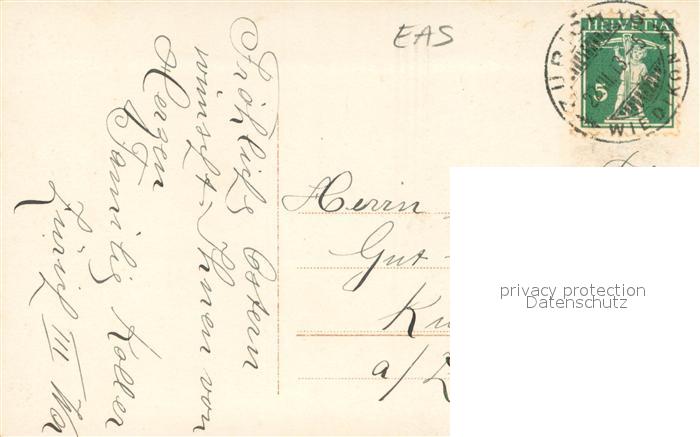 EAS
HELVETIA
5
ZÜRICH
WIEDIKON
Fröhliche Ostern
wünscht Ihnen von
Herzen
Familie Koller
Zürich III
Herrn
Gut
a/Z
privacy protection
Datenschutz